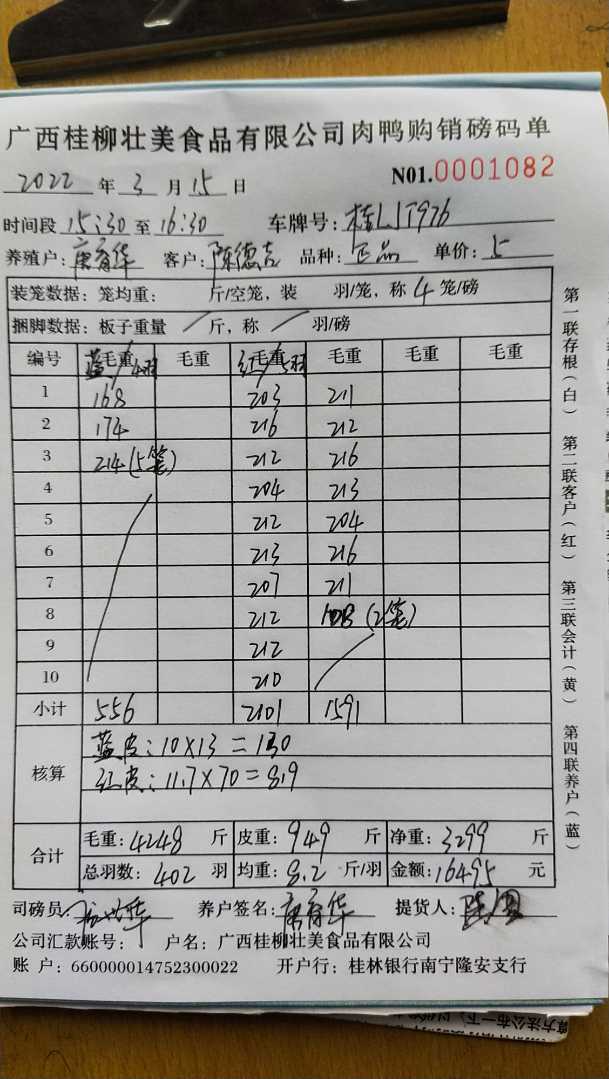 广西桂柳壮美食品有限公司肉鸭购销磅码单
2022 年 3 月 15 日 N01.0001082
时间段 15:30 至 16:30 车牌号: 桂LJT976
养殖户: 唐育华 客户: 陈德吉 品种: 正品 单价: 5
装笼数据: 笼均重: 斤/空笼, 装 羽/笼, 称 4 笼/磅
捆脚数据: 板子重量 / 斤, 称 / 羽/磅
编号 毛重 蓝/4羽 毛重 毛重 红/5羽 毛重 毛重 毛重
1 168 203 211
2 174 216 212
3 214(5笼) 212 216
4 204 213
5 212 204
6 213 216
7 207 211
8 212 108 (2笼)
9 212
10 210
小计 556 2101 1591
核算 蓝皮: 10×13=130
红皮: 11.7×70=8.9
合计 毛重: 4248 斤 皮重: 949 斤 净重: 3299 斤
总羽数: 402 羽 均重: 8.2 斤/羽 金额: 16495 元
司磅员: 养户签名: 唐育华 提货人:
公司汇款账号: 户名: 广西桂柳壮美食品有限公司
账 户: 660000014752300022 开户行: 桂林银行南宁隆安支行
第一联存根(白) 第二联客户(红) 第三联会计(黄) 第四联养户(蓝)